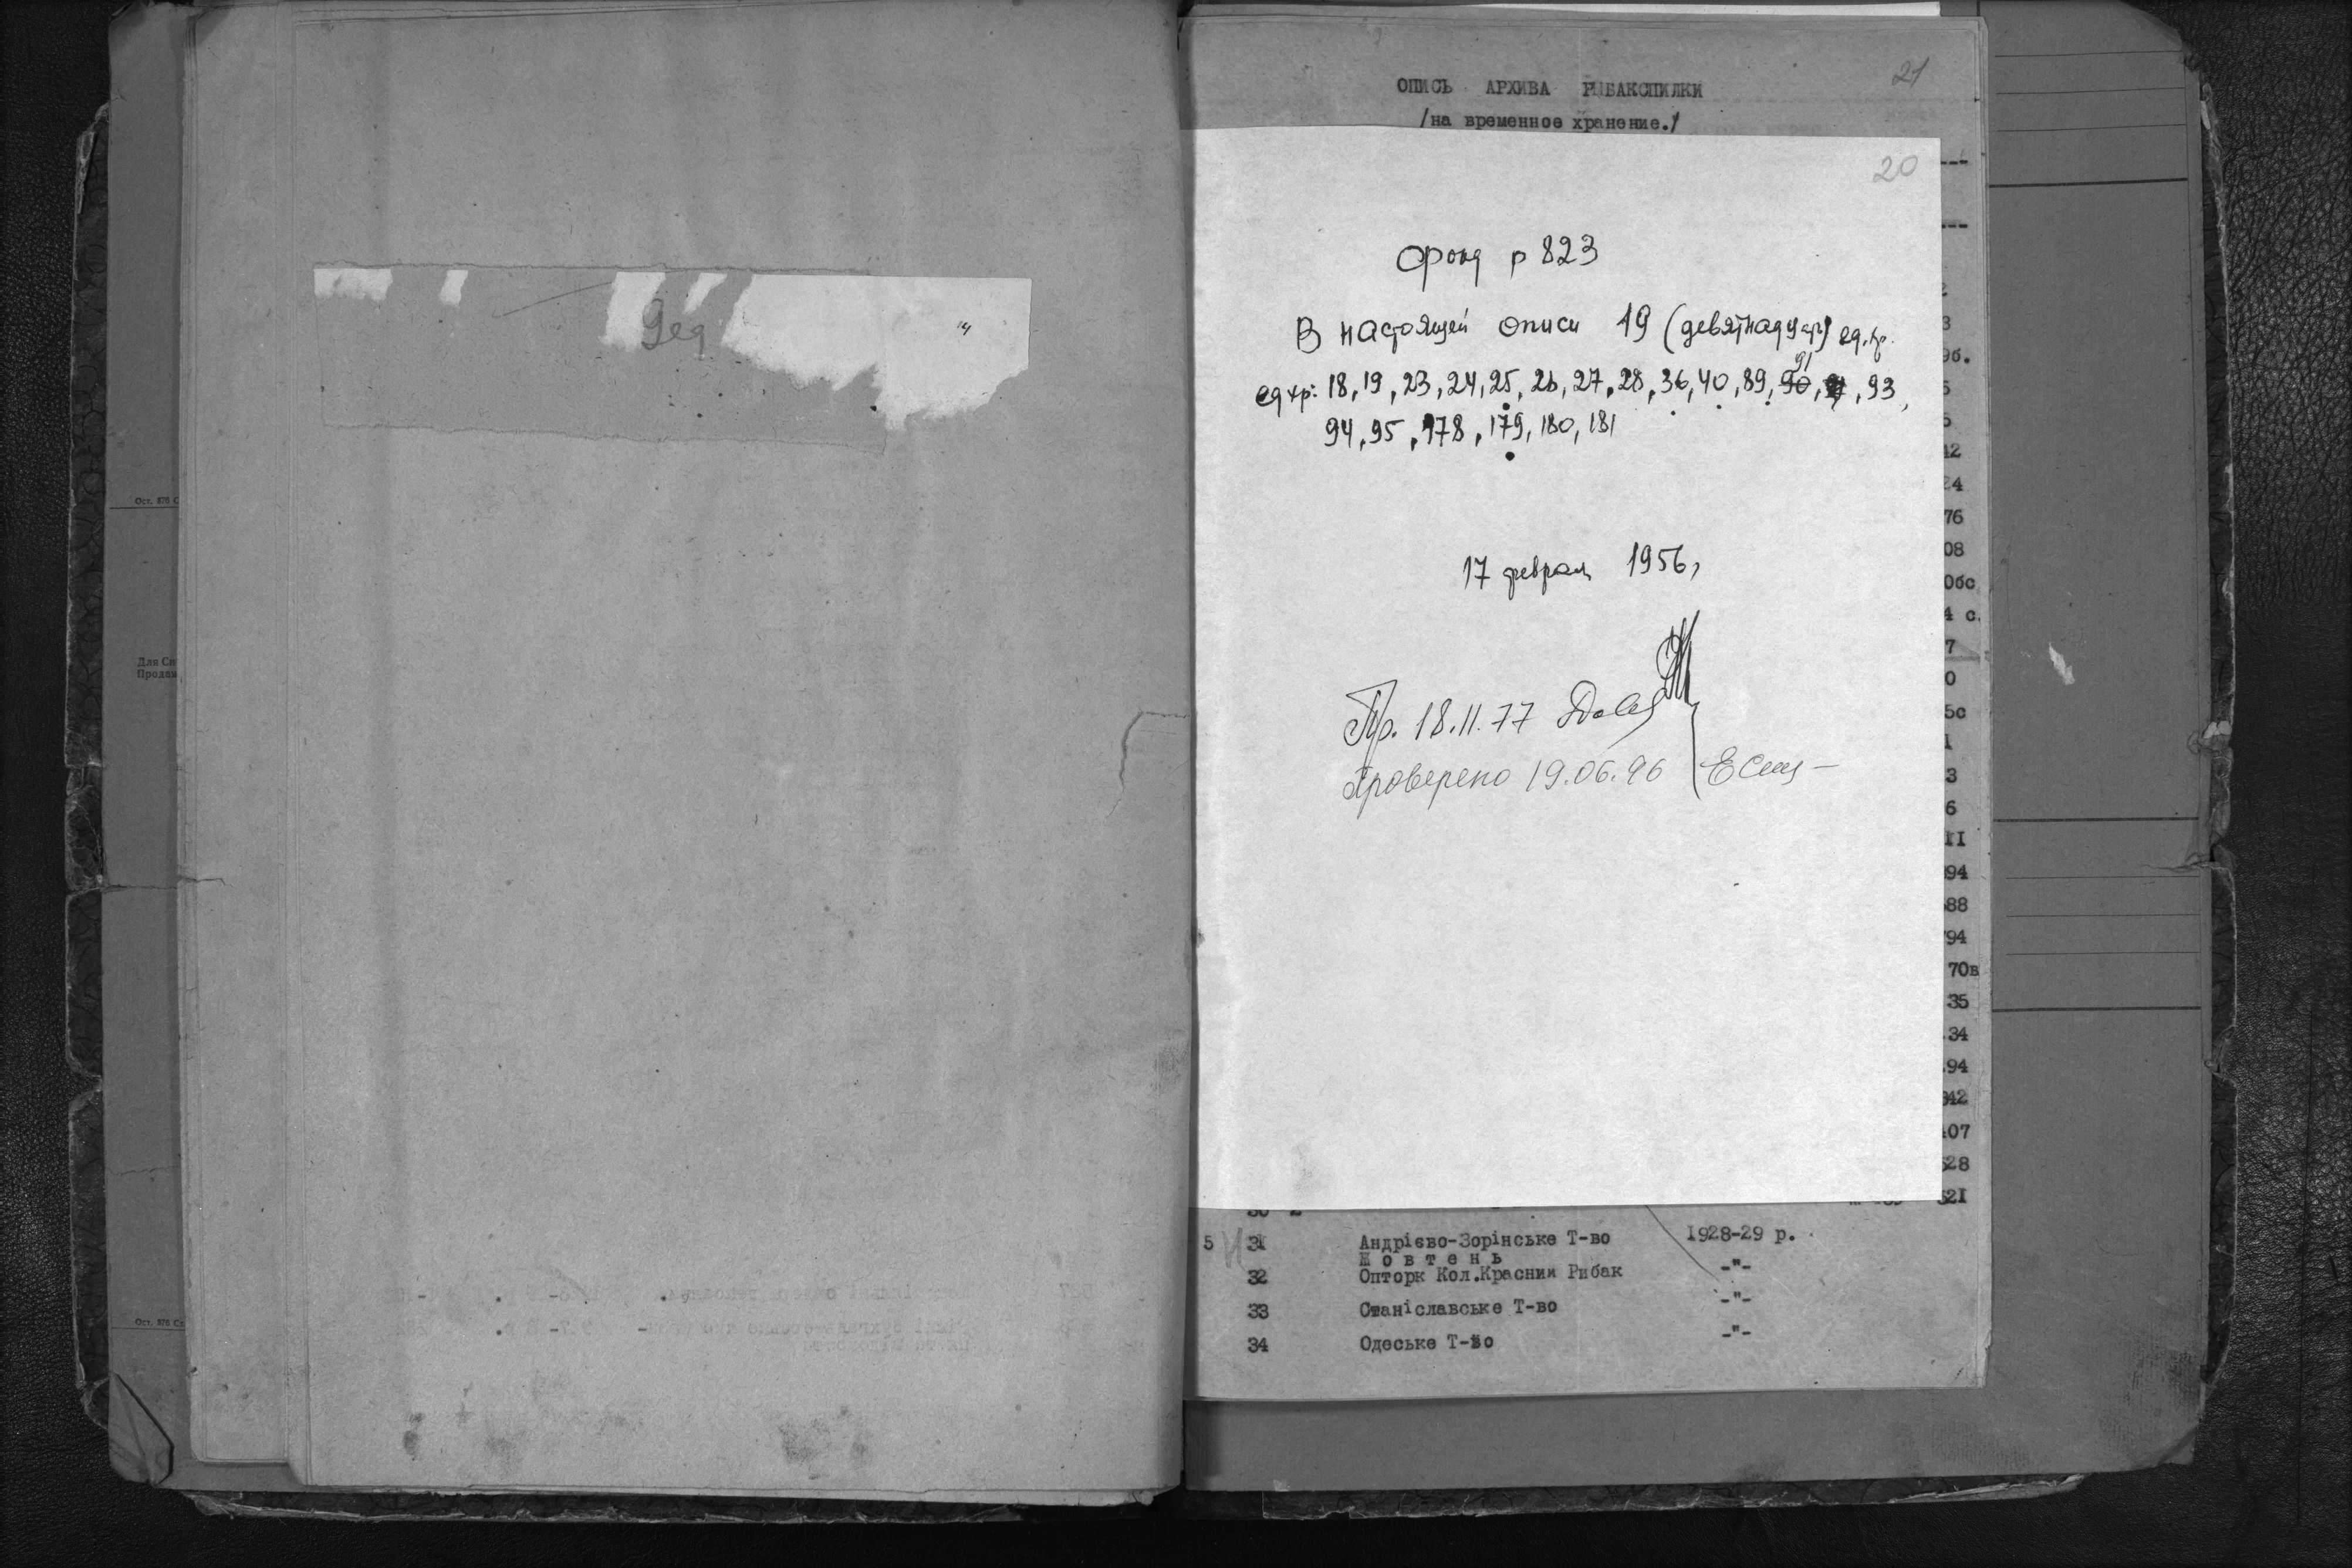 Ост. 876 С
Для Сп
Продви
Ост. 876 Ст
дед
"
21
ОПИСЬ АРХИВА РЫБАКСПИЛКИ
/на временное хранение./
20
Фонд р 823
В настоящей описи 19 (девятнадцать) ед. хр.
ед хр: 18, 19, 23, 24, 25, 26, 27, 28, 36, 40, 89, 90, 91, 93,
94, 95, 178, 179, 180, 181
17 февраля 1956,
Пр. 18.11.77
Проверено 19.06.96
3
9б.
5
42
24
76
08
0бс
4 с.
7
0
5с
3
6
II
94
88
94
70в
35
34
94
42
07
28
30 2 52I
5 3I Андрієво-Зорінське Т-во I928-29 р.
Жовтень
32 Опторк Кол.Красний Рибак -"-
33 Станіславське Т-во -"-
34 Одеське Т-во -"-